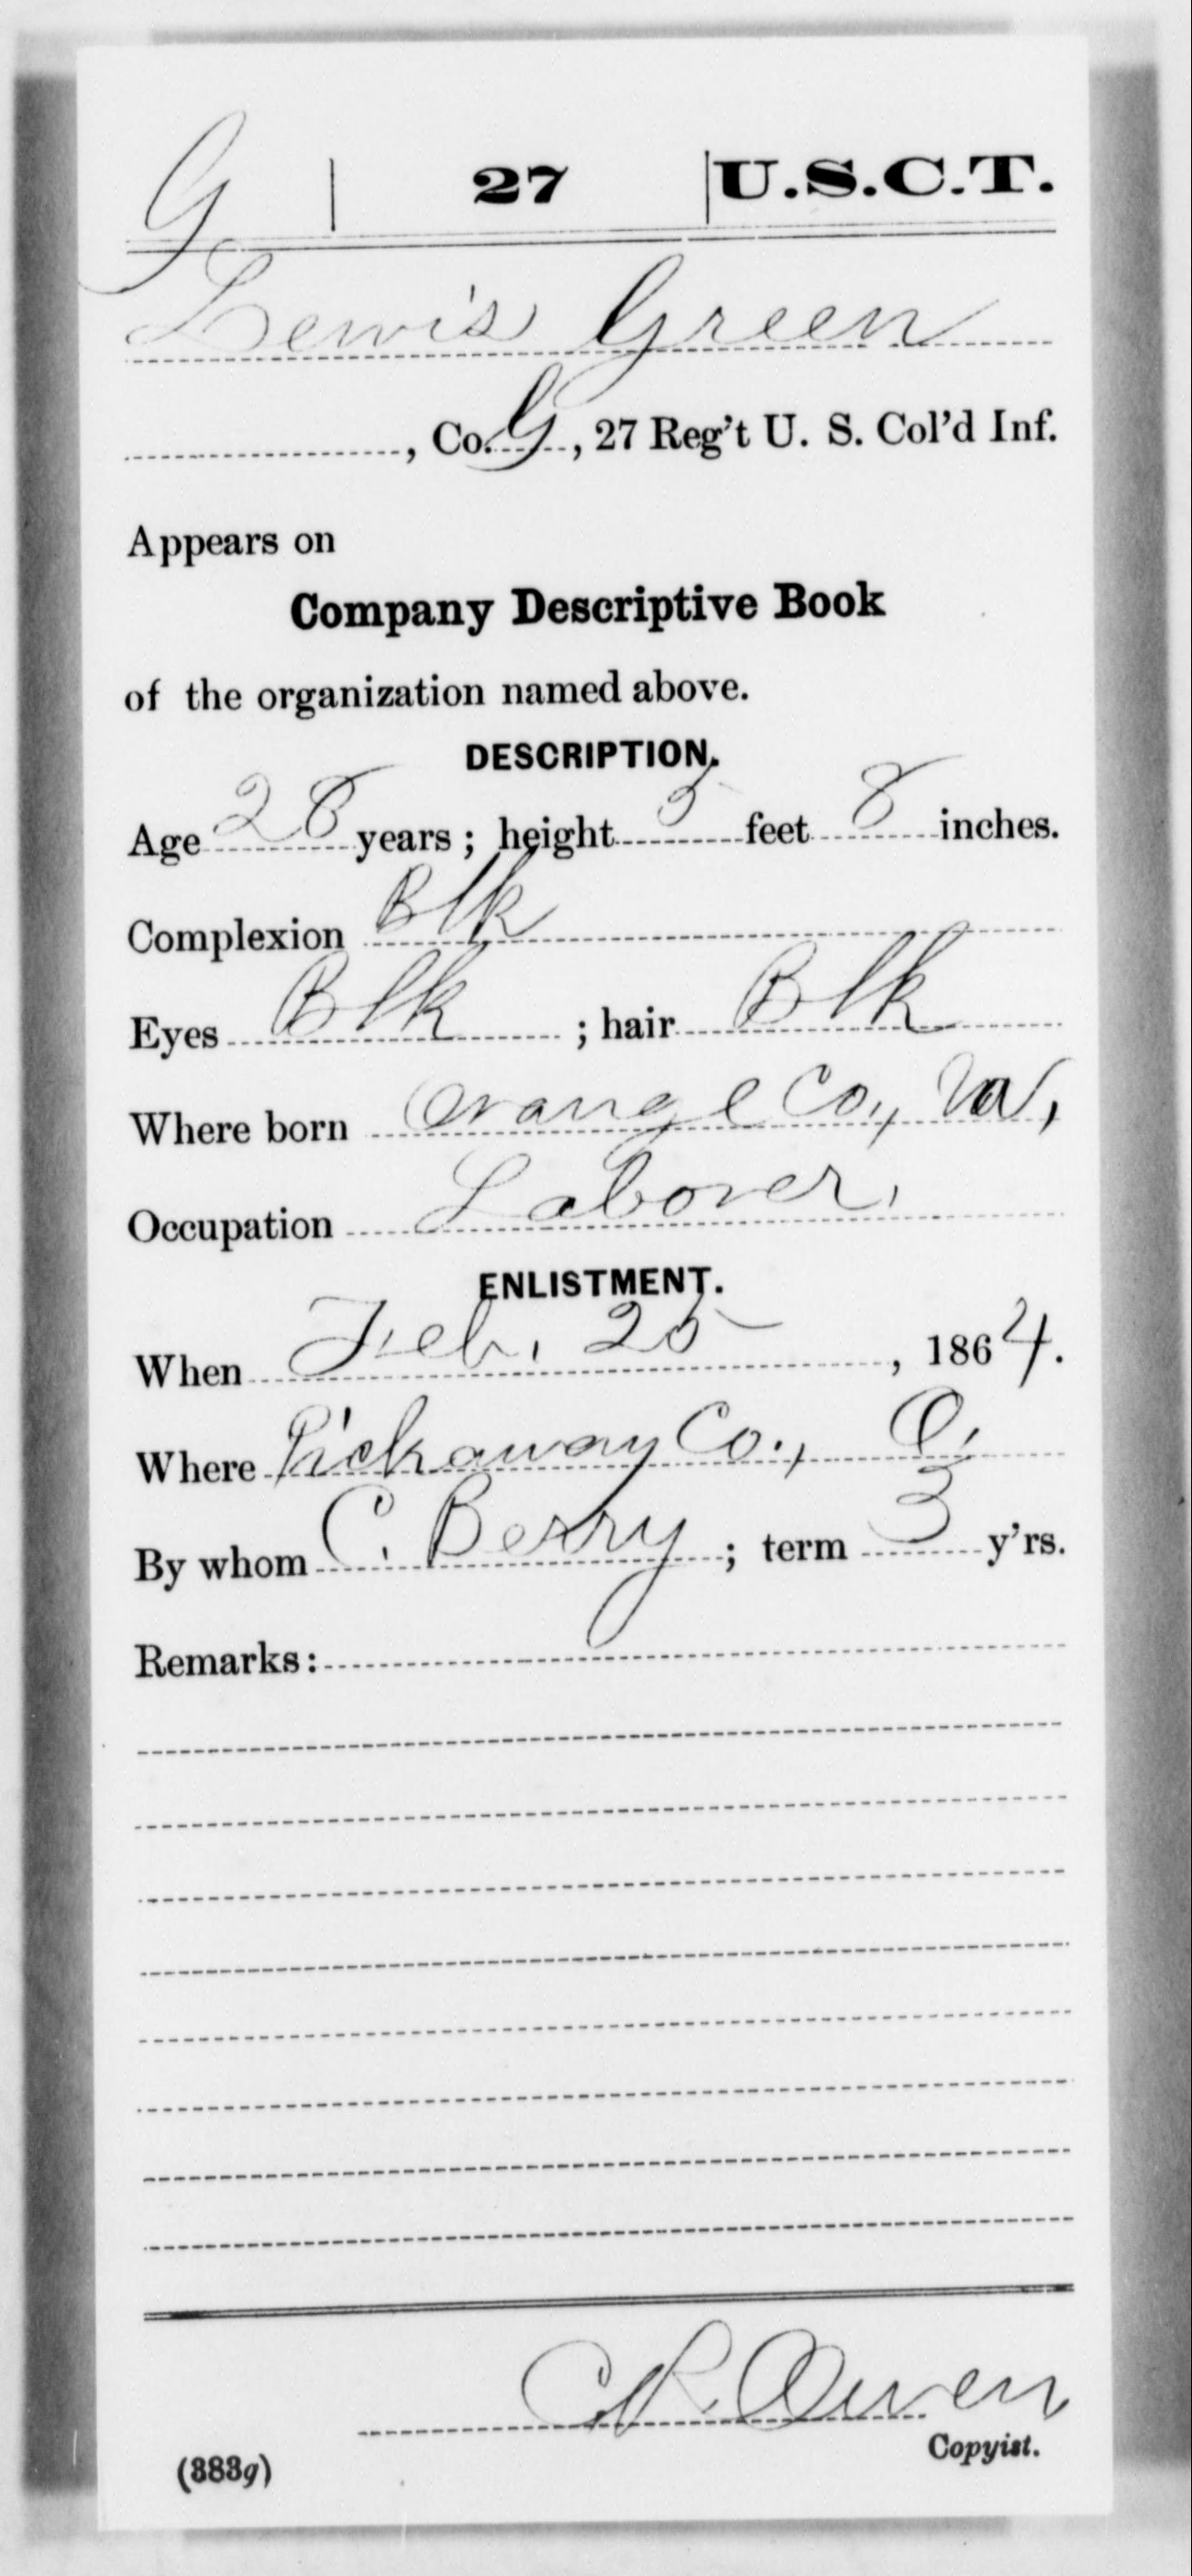 G | 27 | U.S.C.T.
Lewis Green
, Co. G, 27 Reg't U. S. Col'd Inf.
Appears on
Company Descriptive Book
of the organization named above.
DESCRIPTION.
Age 28 years; height 5 feet 8 inches.
Complexion Blk
Eyes Blk ; hair Blk
Where born Orange Co., Va,
Occupation Laborer,
ENLISTMENT.
When Feb. 25, 1864.
Where Pickaway Co., O,
By whom C. Berry ; term 3 y'rs.
Remarks:
Owen
Copyist.
(383g)